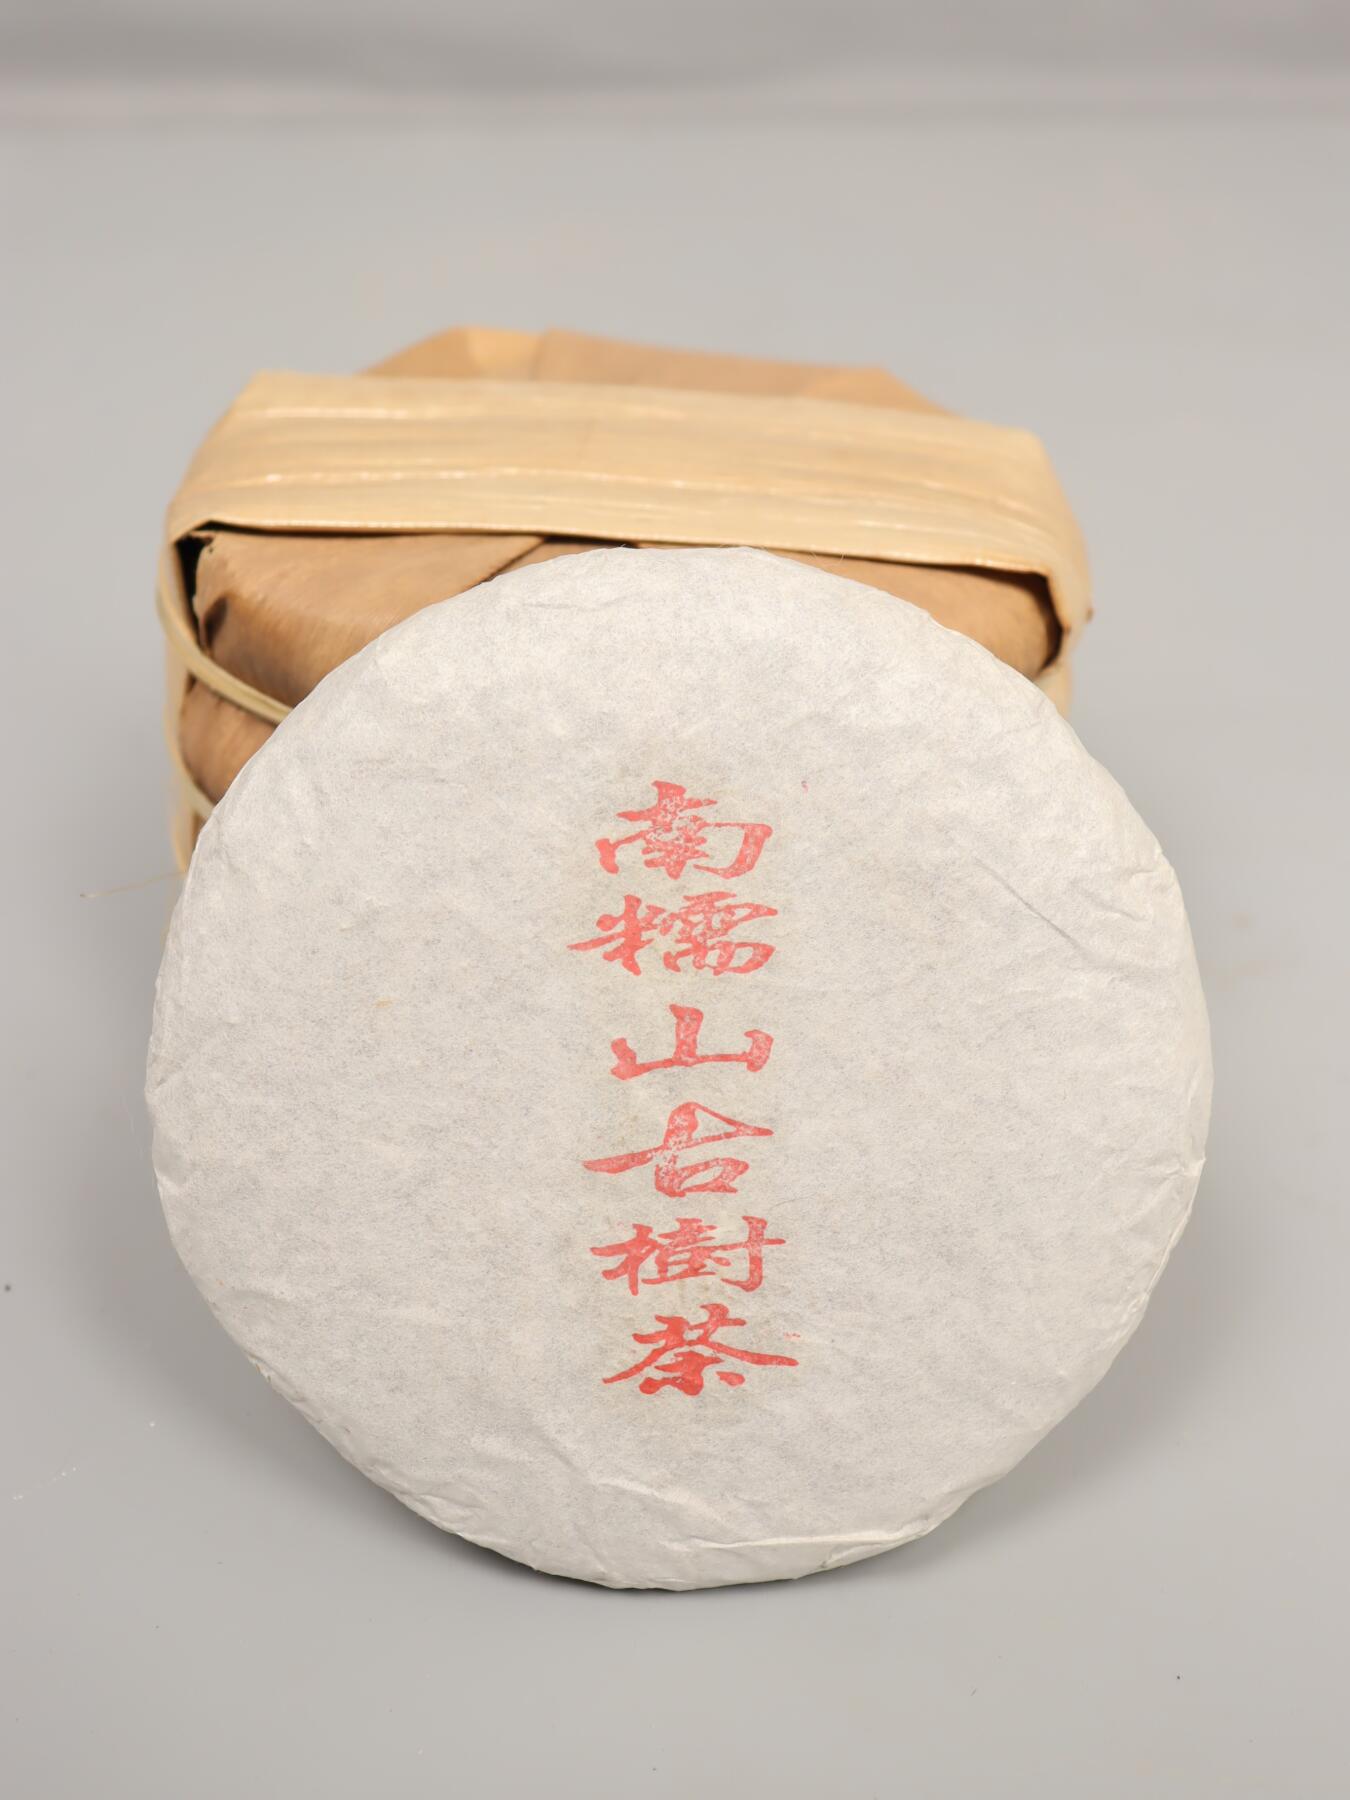 南糯山古樹茶